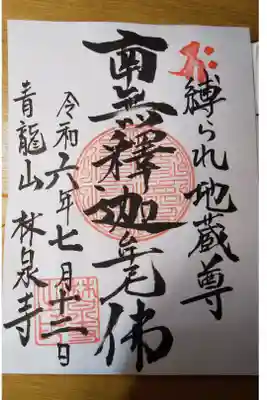 縛られ地蔵尊
南無釋迦牟尼佛
令和六年七月十二日
青龍山 林泉寺